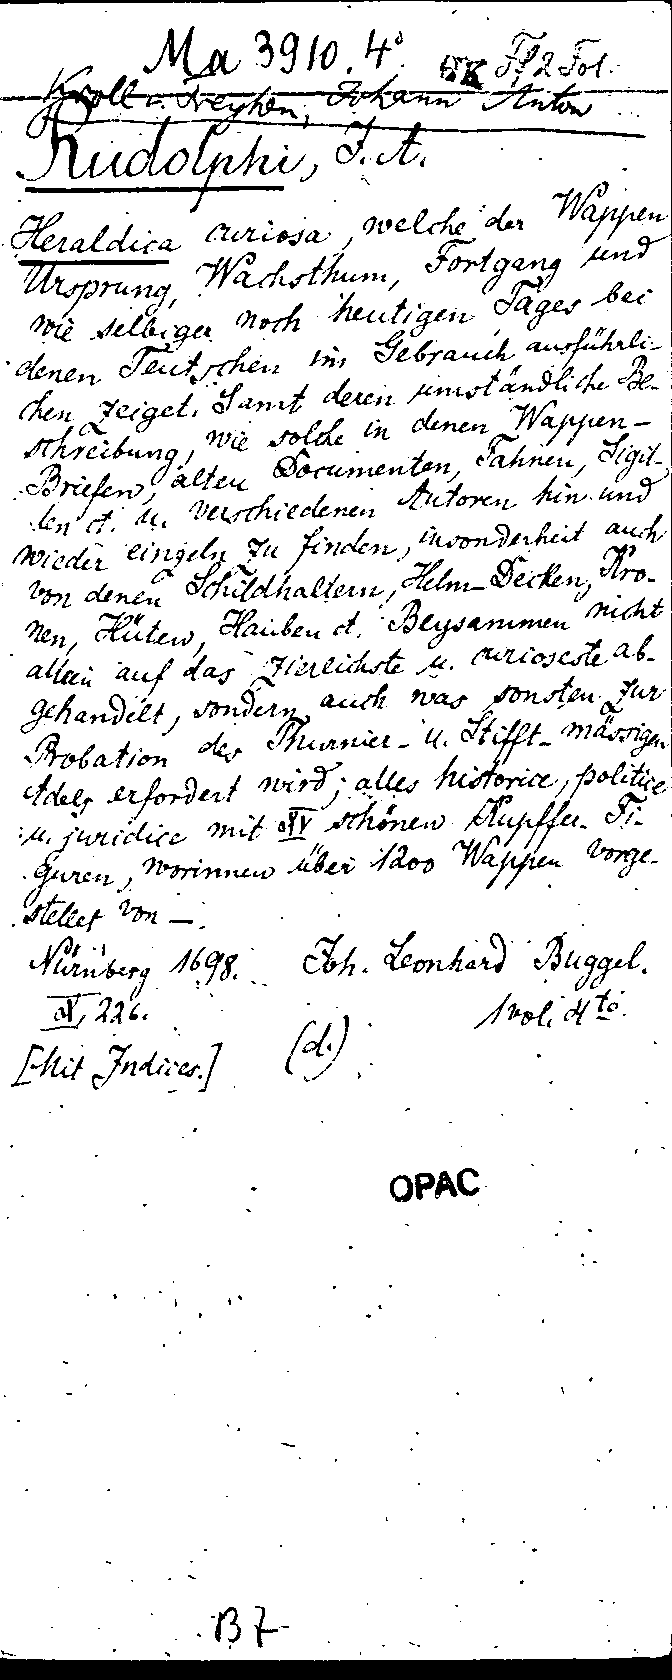 Ma 3910. 4° Ff 2 Fol.
Kroll v. Freyhen, Johann Anton
Rudolphi, J. A.
Heraldica curiosa, welche der Wappen
Ursprung, Wachsthum, Fortgang und
wie selbiger noch heutigen Tages bei
denen Teutschen im Gebrauch ausführli-
chen zeiget. Samt deren umständliche Be-
schreibung, wie solche in denen Wappen-
Briefen, alten Documenten, Fahnen, Sigil-
len et. u. verschiedenen Autoren hin und
wieder eingeln zu finden, insonderheit auch
von denen Schildhaltern, Helm-Decken, Kro-
nen, Hüten, Hauben et. Beysammen nicht
allein auf das zierlichste u. curioseste ab-
gehandelt, sondern auch was sonsten zur
Probation des Thurnier- u. Stifft-mässigen
Adels erfordert wird; alles historice, politice
u. juridice mit schönen Kupffer-Fi-
guren, worinnen über 1200 Wappen vorge-
stellet von —.
Nürnberg 1698. Joh. Leonhard Buggel.
226. 1 vol. 4to.
[Mit Indices.] (d.)
OPAC
B7